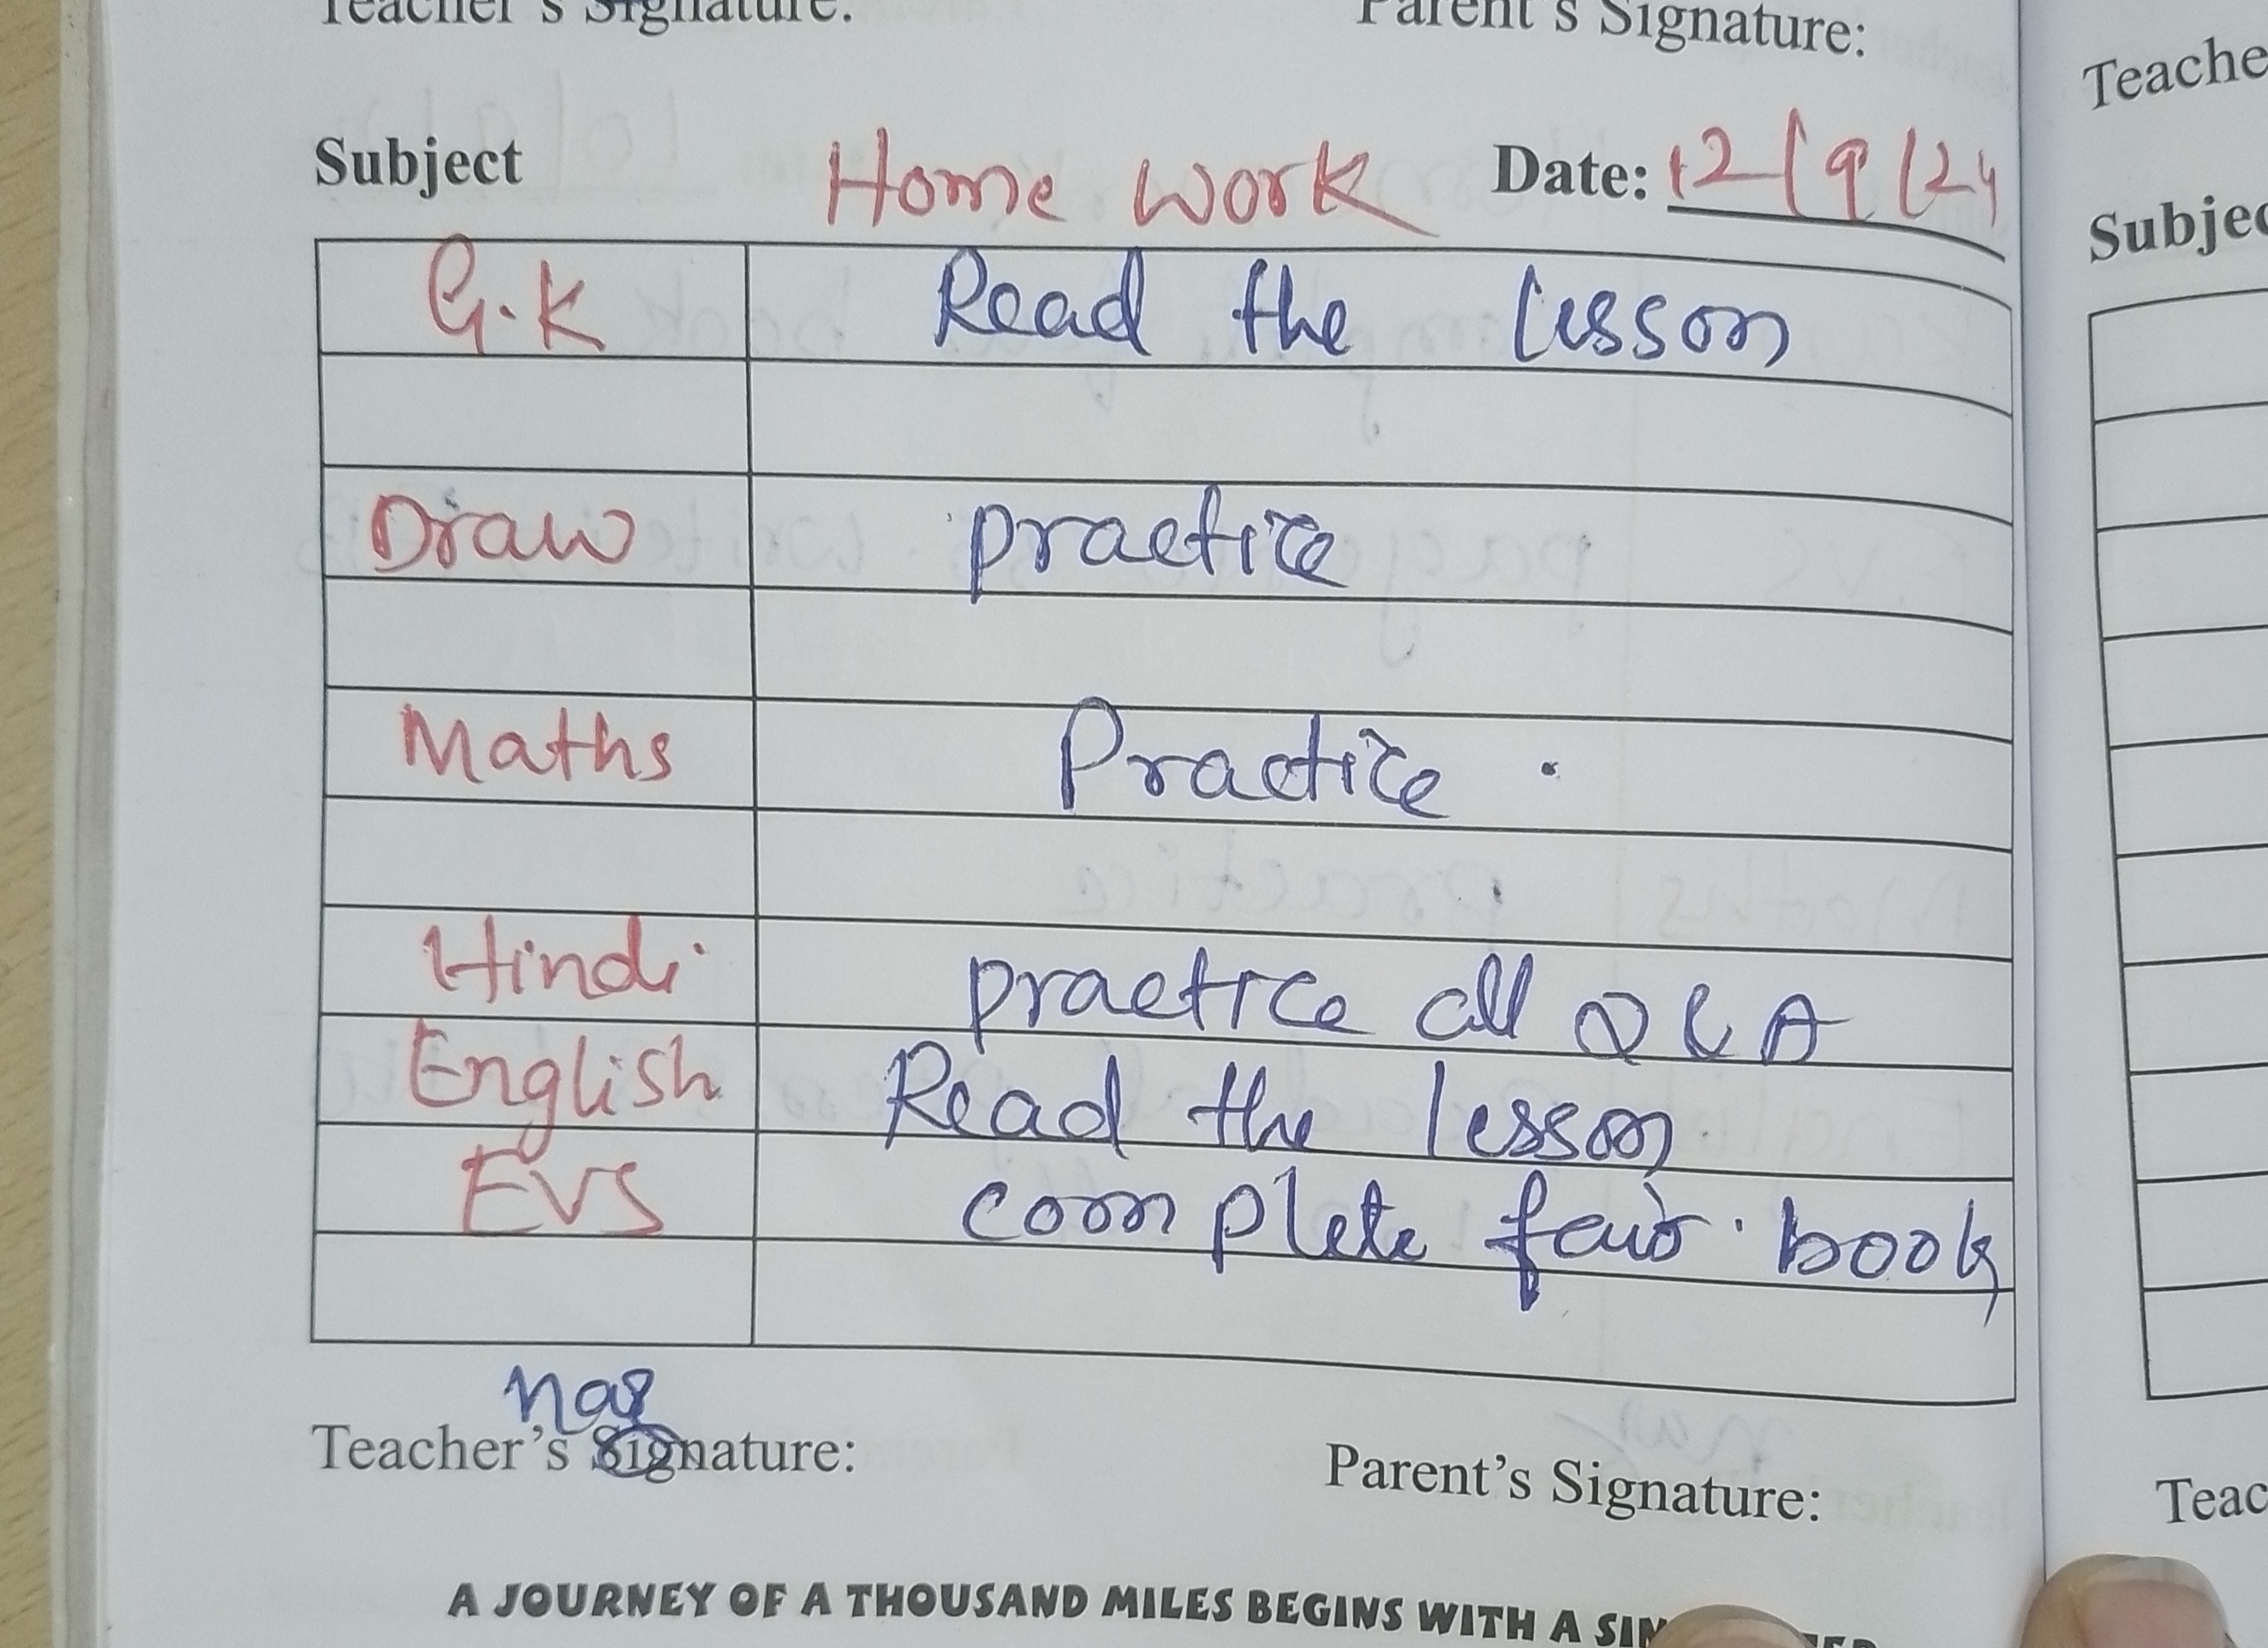 Teacher's Signature: Parent's Signature:
Subject Home Work Date: 12/9/24
G.K Read the lesson
Draw practice
Maths Practice .
Hindi practice all Q & A
English Read the lesson
EVS complete fair book
Teacher's Signature: Parent's Signature:
A JOURNEY OF A THOUSAND MILES BEGINS WITH A
Teache
Subjec
Teac